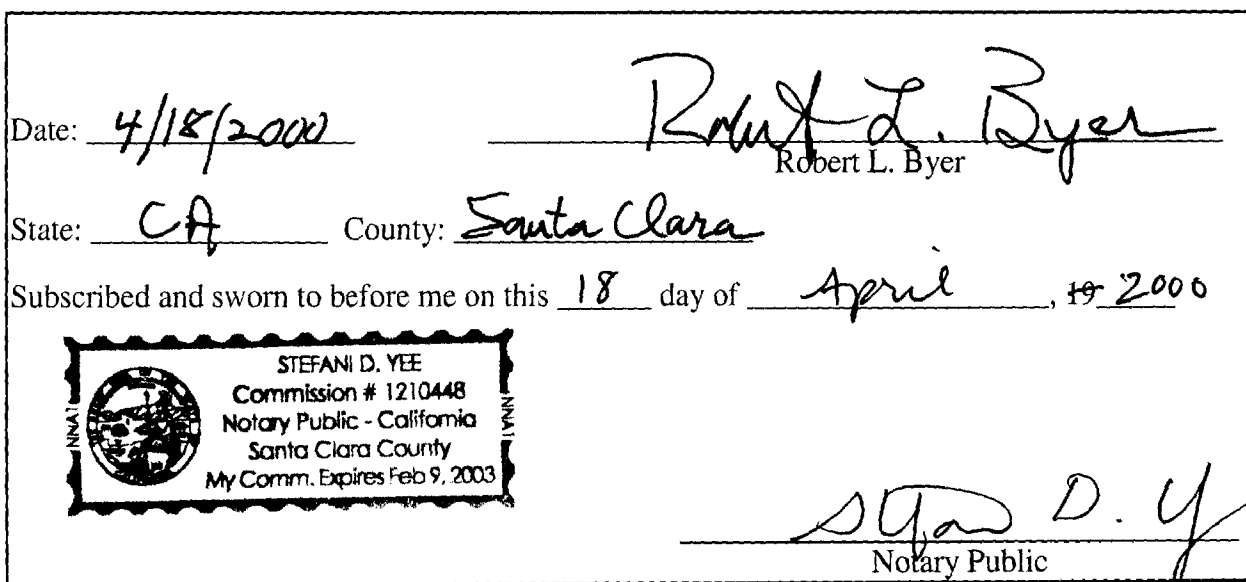 Date: 4/18/2000 Robert L. Byer
Robert L. Byer
State: CA County: Santa Clara
Subscribed and sworn to before me on this 18 day of April, 19 2000
STEFANI D. YEE
Commission # 1210448
Notary Public - California
Santa Clara County
My Comm. Expires Feb 9, 2003
NNA1
NNA1
Stefani D. Y
Notary Public